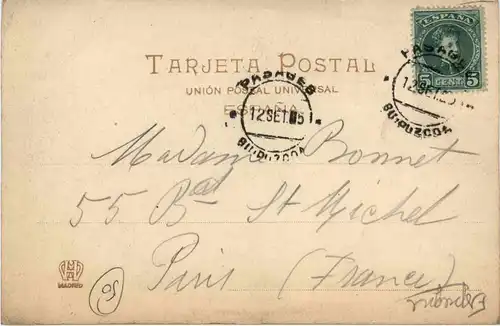 ESPAÑA
5 CENT. 5
TARJETA POSTAL
UNIÓN POSTAL UNIVERSAL
ESPAÑA
PASAGES
12 SET. 05
GUIPUZCOA
PASAGES
12 SET. 05
GUIPUZCOA
Madame Bonnet
55 Bd St Michel
Paris (France)
MADRID
05